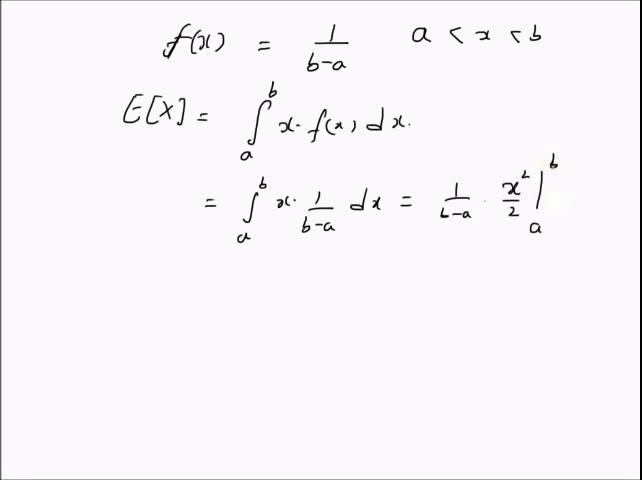 f(x) = 1/(b-a) a < x < b
E[X] = ∫_a^b x · f(x) dx.
= ∫_a^b x · 1/(b-a) dx = 1/(b-a) · x²/2 |_a^b